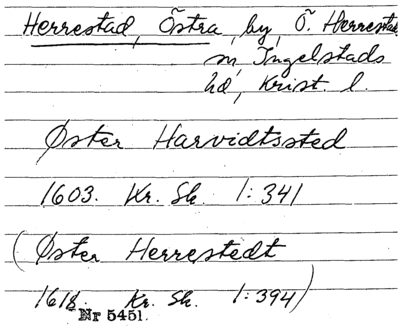 Herrestad, Östra, by, Ö. Herrestads
sn, Ingelstads
hd, Krist. l.
Øster Harvidtssted
1603. Kr. Sk. 1:341
(Øster Herrestedt
1618. Kr. Sk. 1:394)
Nr 5451.